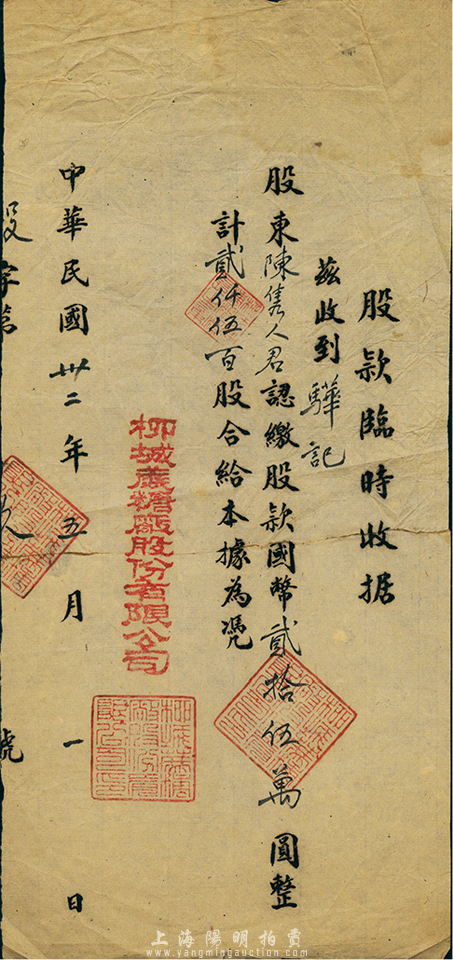 股款臨時收据
茲收到驊記
股東陳雋人君認繳股款國幣貳拾伍萬圓整
計貳仟伍百股合給本據為憑
柳城蔗糖廠股份有限公司
中華民國卅二年五月一日
股字第
號
上海陽明拍賣
www.yangmingauction.com